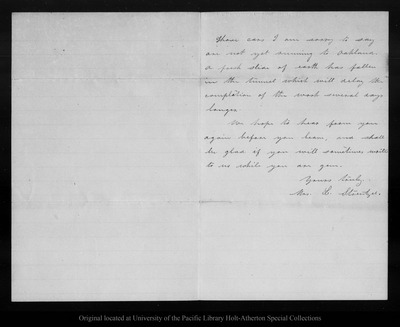 These cars I am sorry to say
are not yet running to Oakland.
A fresh slide of earth has fallen
in the tunnel which will delay the
completion of the work several days
longer.
We hope to hear from you
again before you leave, and shall
be glad if you will sometimes write
to us while you are gone.
Yours truly
Mrs. L.
Original located at University of the Pacific Library Holt-Atherton Special Collections